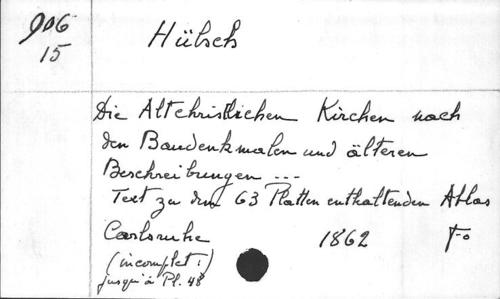 906
15
Hübsch
Die Altchristlichen Kirchen nach
den Baudenkmalen und älteren
Beschreibungen ---
Text zu dem 63 Platten enthaltenden Atlas
Carlsruhe 1862 Fo
(incomplet:
jusqu'à Pl. 48